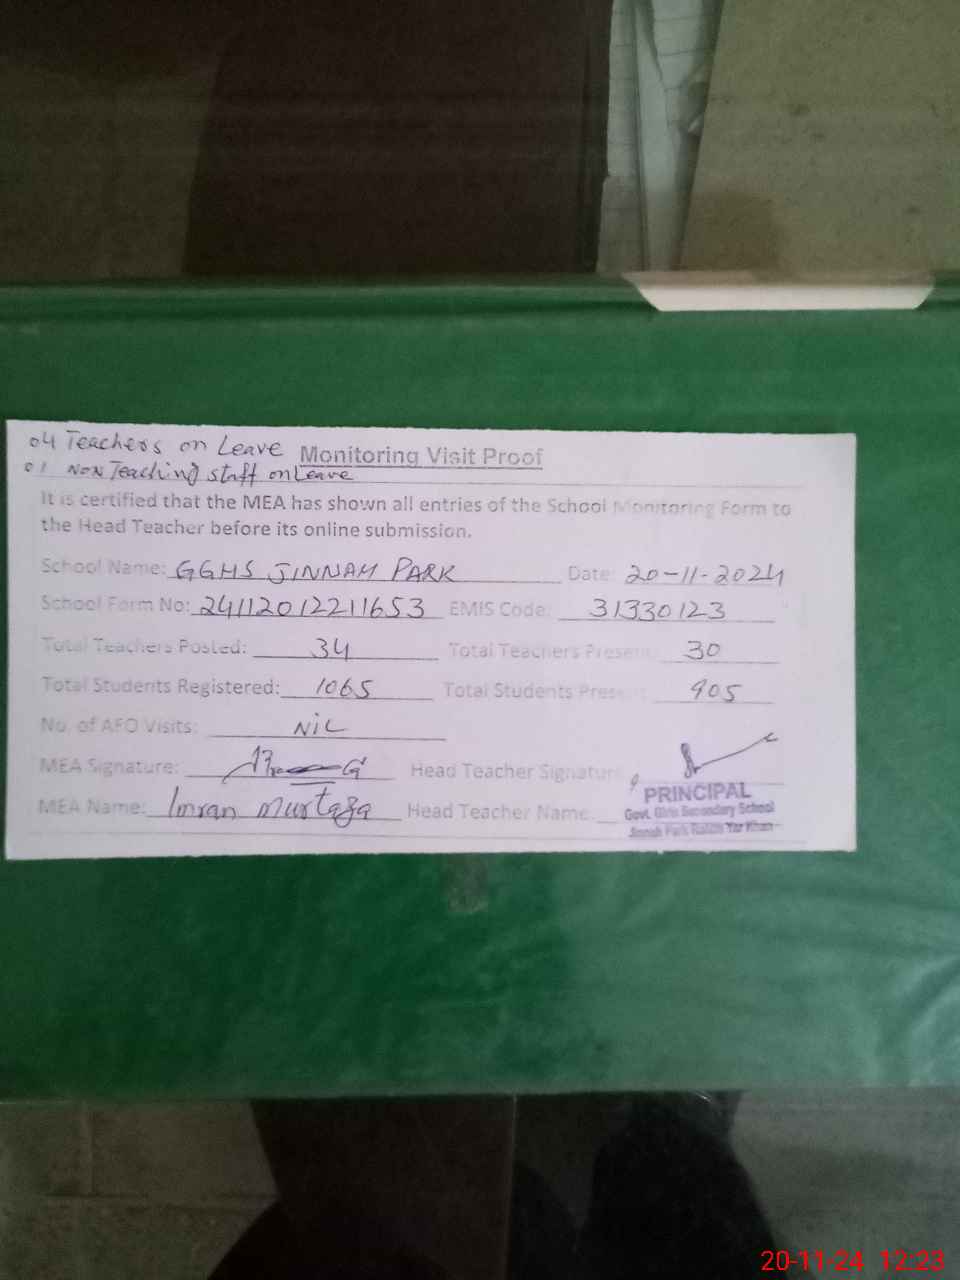 04 Teachers on Leave Monitoring Visit Proof
01 Non Teaching staff on Leave
It is certified that the MEA has shown all entries of the School Monitoring Form to
the Head Teacher before its online submission.
School Name: GGHS JINNAH PARK Date: 20-11-2024
School Form No: 24112012211653 EMIS Code: 31330123
Total Teachers Posted: 34 Total Teachers Present: 30
Total Students Registered: 1065 Total Students Present: 905
No. of AEO Visits: NIL
MEA Signature: Head Teacher Signature:
MEA Name: Imran Murtaza Head Teacher Name:
PRINCIPAL
Govt. Girls Secondary School
Jinnah Park Rahim Yar Khan
20-11-24 12:23